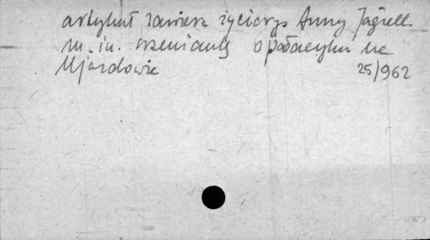 artykuł zawiera życiorys Anny Jagiell.
m. in. wzmiankę o pałacyku na
Ujazdowie
25/962